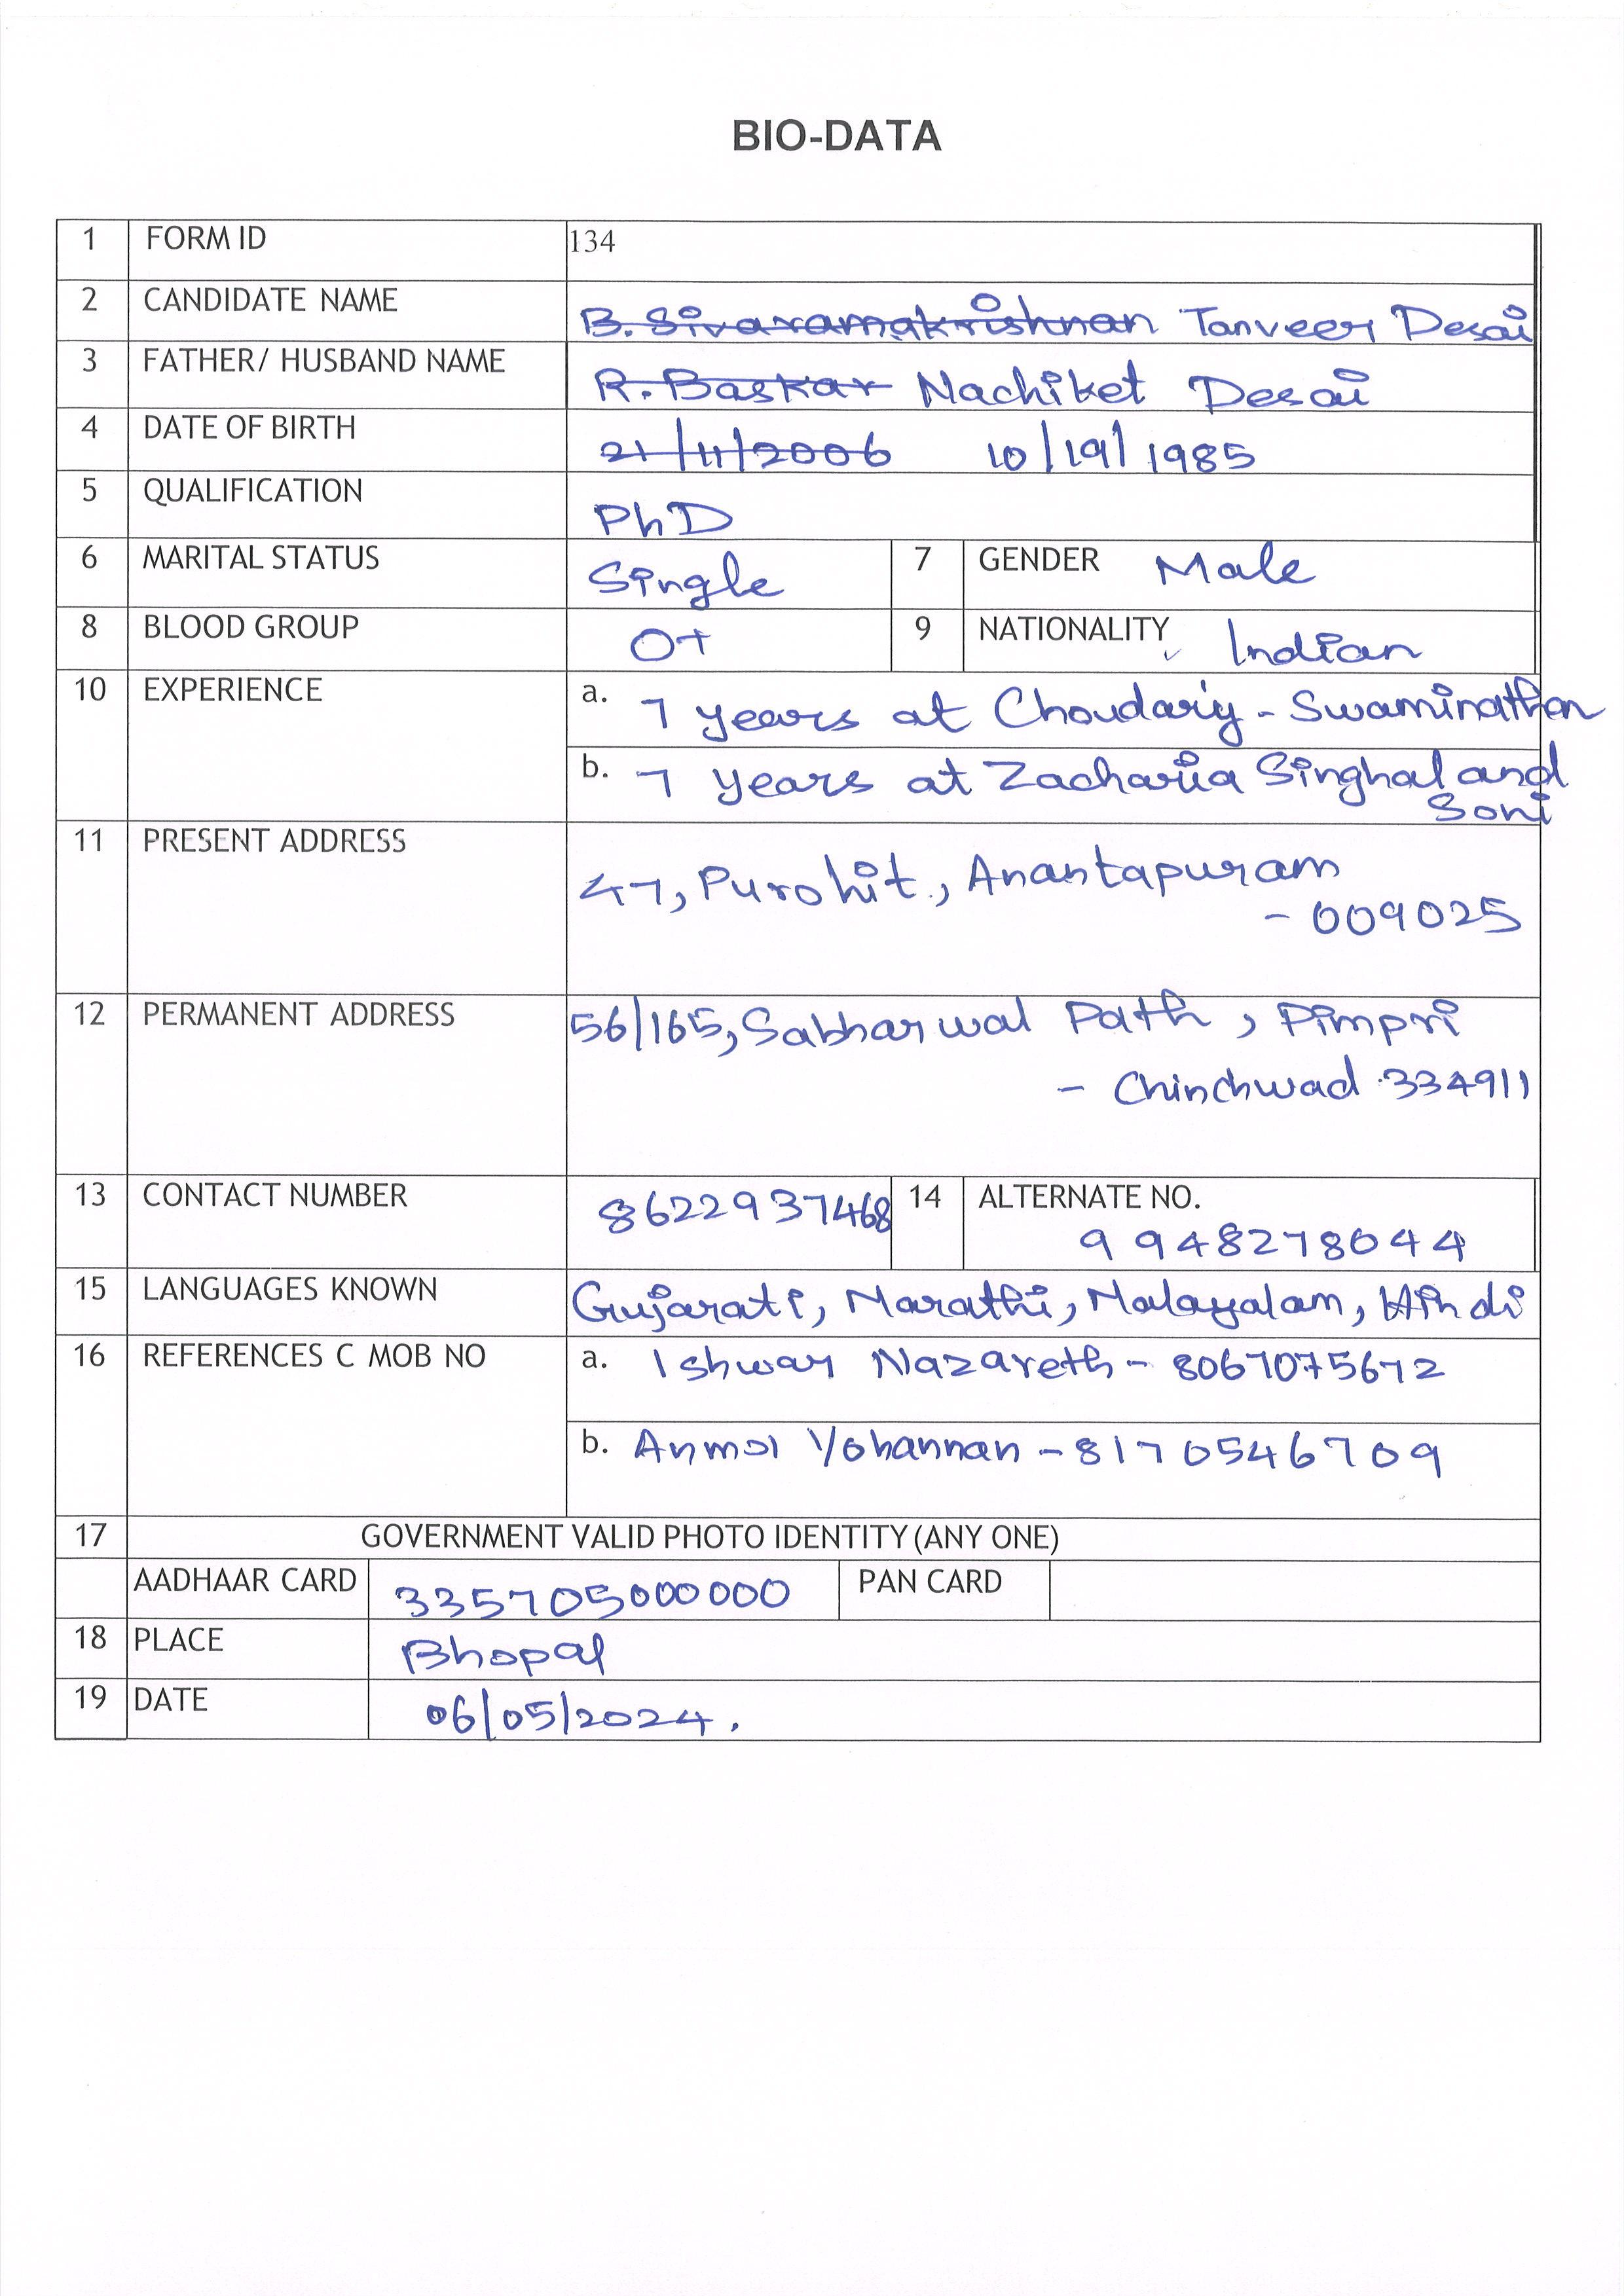 BIO-DATA
1 FORM ID 134
2 CANDIDATE NAME B. Sivaramakrishnan Tanveer Desai
3 FATHER/ HUSBAND NAME R. Baskar Nachiket Desai
4 DATE OF BIRTH 21/11/2006 10/19/1985
5 QUALIFICATION PhD
6 MARITAL STATUS Single 7 GENDER Male
8 BLOOD GROUP O+ 9 NATIONALITY Indian
10 EXPERIENCE a. 7 years at Choudary - Swaminathan
b. 7 years at Zacharia Singhal and
Soni
11 PRESENT ADDRESS
47, Purohit, Anantapuram
- 009025
12 PERMANENT ADDRESS 56/165, Sabharwal Path, Pimpri
- Chinchwad 334911
13 CONTACT NUMBER 8622937468 14 ALTERNATE NO.
9948278644
15 LANGUAGES KNOWN Gujarati, Marathi, Malayalam, Hindi
16 REFERENCES C MOB NO a. Ishwar Nazareth - 8067075672
b. Anmol Yohannan - 8170546709
17 GOVERNMENT VALID PHOTO IDENTITY (ANY ONE)
AADHAAR CARD 335705000000 PAN CARD
18 PLACE Bhopal
19 DATE 06/05/2024.